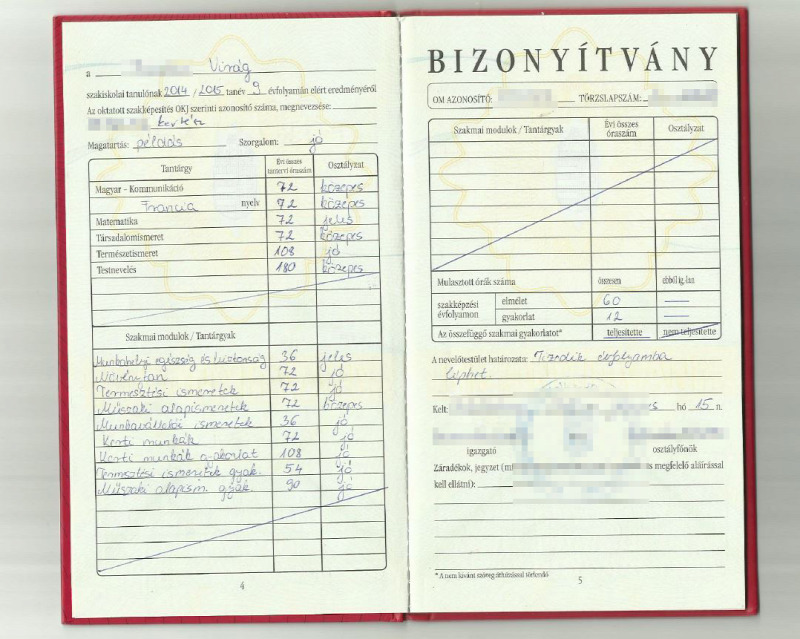 a Virág
szakiskolai tanulónak 2014/2015 tanév 9 évfolyamán elért eredményéről
Az oktatott szakképesítés OKJ szerinti azonosító száma, megnevezése:
kertész
Magatartás: példás Szorgalom: jó
Tantárgy Évi összes tantervi óraszám Osztályzat
Magyar – Kommunikáció 72 közepes
Francia nyelv 72 közepes
Matematika 72 jeles
Társadalomismeret 72 közepes
Természetismeret 108 jó
Testnevelés 180 közepes
Szakmai modulok / Tantárgyak
Munkahelyi egészség és biztonság 36 jeles
Növénytan 72 jó
Termesztési ismeretek 72 jó
Műszaki alapismeretek 72 közepes
Munkavállalói ismeretek 36 jó
Kerti munkák 72 jó
Kerti munkák gyakorlat 108 jó
Termesztési ismeretek gyak. 54 jó
Műszaki alapism. gyak. 90 jó
4
BIZONYÍTVÁNY
OM AZONOSÍTÓ: TÖRZSLAPSZÁM:
Szakmai modulok / Tantárgyak Évi összes óraszám Osztályzat
Mulasztott órák száma összesen ebből ig.lan
szakképzési évfolyamon elmélet 60 —
gyakorlat 12 —
Az összefüggő szakmai gyakorlatot* teljesítette nem teljesítette
A nevelőtestület határozata: Tizedik évfolyamba
léphet.
Kelt: hó 15 n.
igazgató osztályfőnök
Záradékok, jegyzet és megfelelő aláírással
kell ellátni):
* A nem kívánt szöveg áthúzással törlendő
5